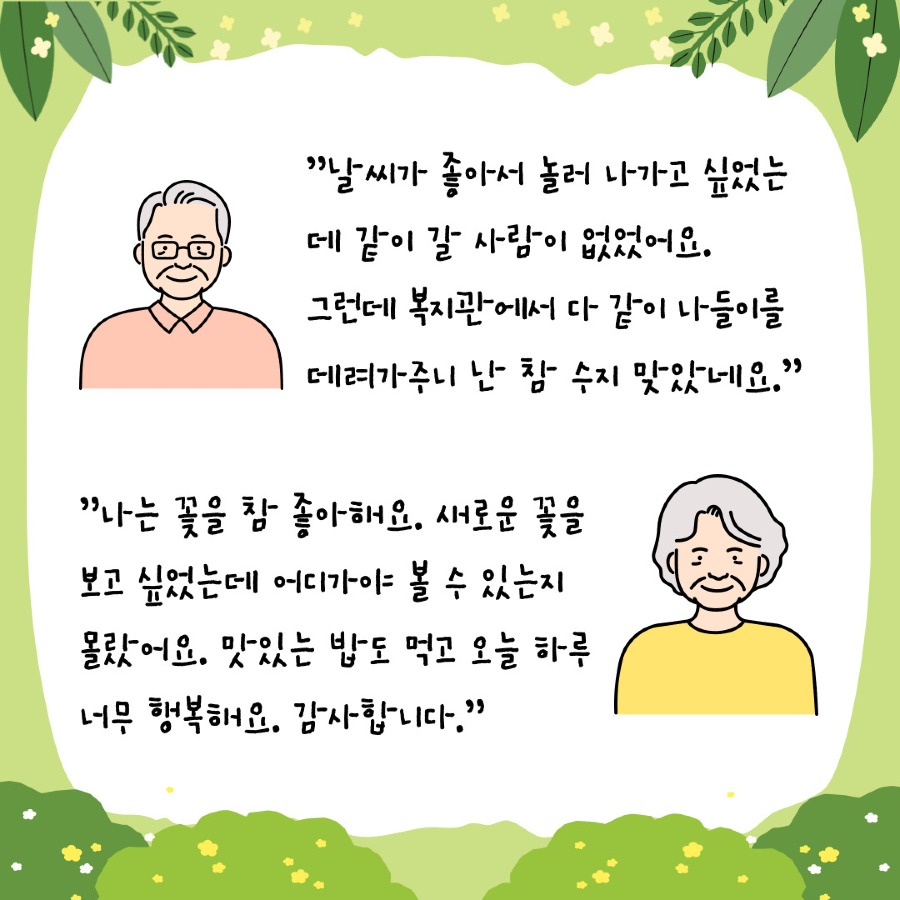 ”날씨가 좋아서 놀러 나가고 싶었는
데 같이 갈 사람이 없었어요.
그런데 복지관에서 다 같이 나들이를
데려가주니 난 참 수지 맞았네요.”
”나는 꽃을 참 좋아해요. 새로운 꽃을
보고 싶었는데 어디가야 볼 수 있는지
몰랐어요. 맛있는 밥도 먹고 오늘 하루
너무 행복해요. 감사합니다.”